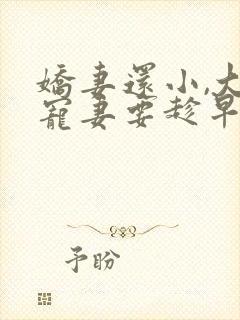 嬌妻還小,大
寵妻要趁早
予盼